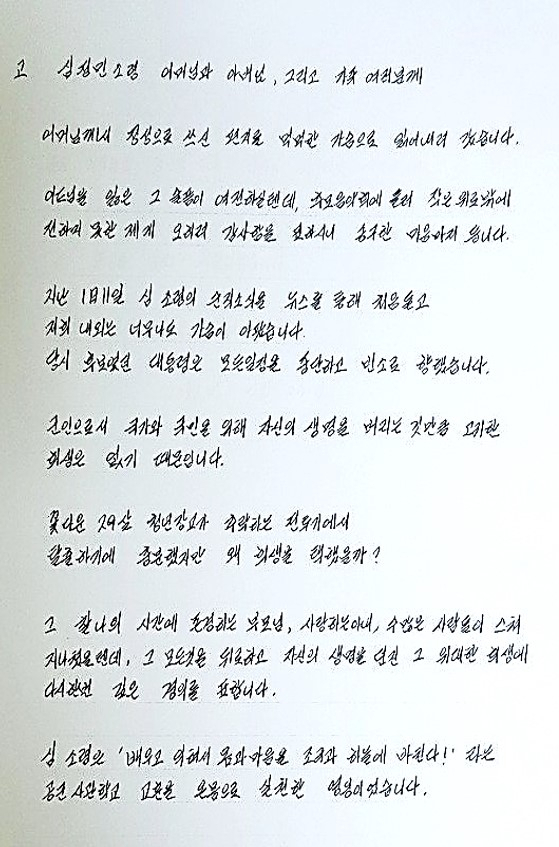 고 심정민 소령 어머님과 아버님, 그리고 가족 여러분께
어머님께서 정성으로 쓰신 편지를 먹먹한 가슴으로 읽어내려 갔습니다.
아드님을 잃은 그 슬픔이 여전하실텐데, 추모음악회에 들러 작은 위로밖에
전하지 못한 제게 오히려 감사함을 표하시니 송구한 마음마저 듭니다.
지난 1월 11일 심 소령의 순직소식을 뉴스를 통해 처음 듣고
저희 내외는 너무나도 가슴이 아팠습니다.
당시 후보였던 대통령은 모든일정을 중단하고 빈소로 향했습니다.
군인으로서 국가와 국민을 위해 자신의 생명을 버리는 것만큼 고귀한
희생은 없기 때문입니다.
꽃다운 29살 청년장교가 추락하는 전투기에서
탈출하기에 충분했지만 왜 희생을 택했을까?
그 찰나의 시간에 존경하는 부모님, 사랑하는아내, 수많은 사람들이 스쳐
지나쳤을텐데, 그 모든것을 뒤로하고 자신의 생명을 던진 그 위대한 희생에
다시한번 깊은 경의를 표합니다.
심 소령은 '배우고 익혀서 몸과마음을 조국과 하늘에 바친다!' 라는
공군 사관학교 교훈을 온몸으로 실천한 영웅이었습니다.